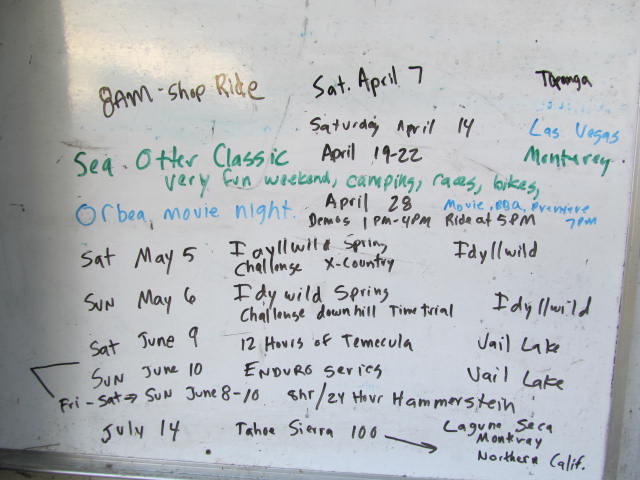 8AM - Shop Ride Sat. April 7 Topanga
Saturday April 14 Las Vegas
Sea Otter Classic April 19-22 Monterey
very fun weekend, camping, races, bikes,
Orbea movie night. April 28 Movie, BBQ, Premiere
Demos 1PM-4PM Ride at 5PM 7PM
Sat May 5 Idyllwild Spring Idyllwild
Challenge X-Country
Sun May 6 Idywild Spring Idyllwild
Challenge downhill Time trial
Sat June 9 12 Hours of Temecula Vail Lake
Sun June 10 Enduro Series Vail Lake
Fri - Sat → Sun June 8-10 8hr/24 Hour Hammerstein
July 14 Tahoe Sierra 100 → Laguna Seca
Montray
Northern Calif.